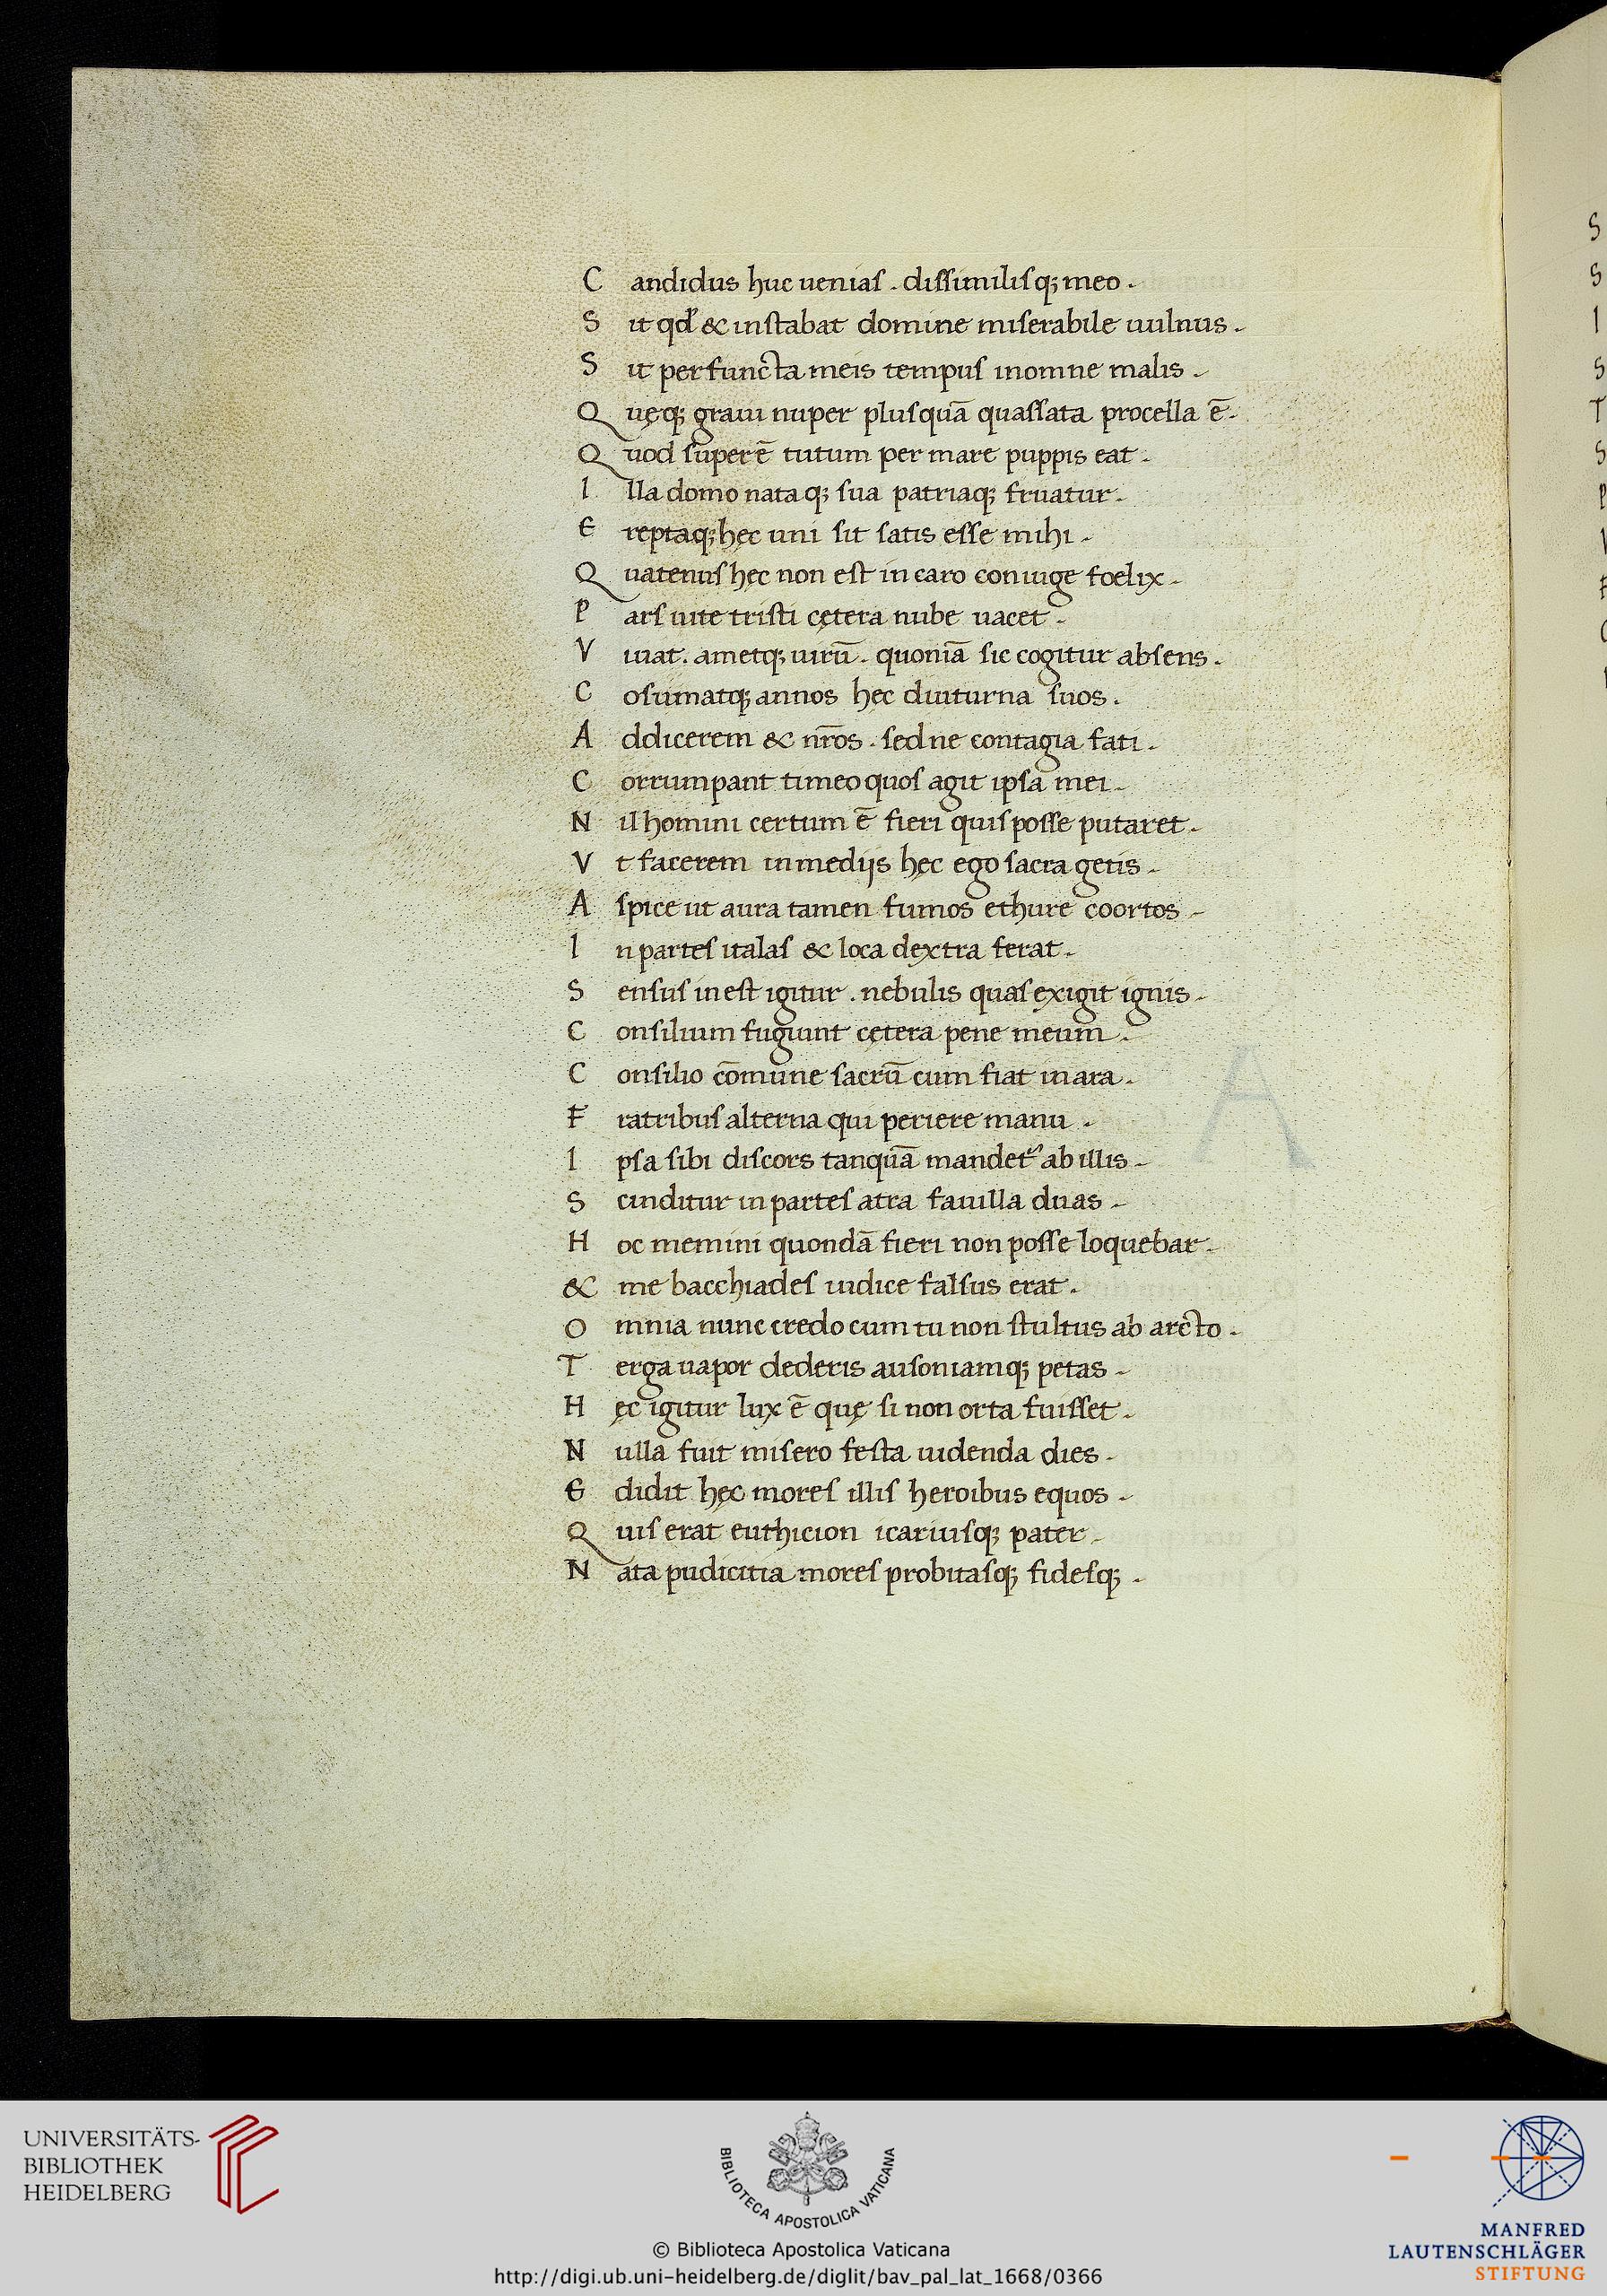 C andidus huc uenias . dissimilisq; meo .
S it qd' & instabat domine miserabile uulnus .
S it perfuncta meis tempus inomne malis .
Q uęq; graui nuper plusquā quassata procella ē .
Q uod superē tutum per mare puppis eat .
I lla domo nataq; sua patriaq; fruatur .
E reptaq; hęc uni sit satis esse mihi .
Q uatenus hęc non est in caro coniuge foelix .
P ars uite tristi cętera nube uacet .
V iuat . ametq; uirū . quoniā sic cogitur absens .
C osumatq; annos hęc diuturna suos .
A ddicerem & nr̄os . sed ne contagia fati .
C orrumpant timeo quos agit ipsa mei .
N il homini certum ē fieri quis posse putaret .
V t facerem in medijs hęc ego sacra getis .
A spice ut aura tamen fumos ethure coortos .
I n partes italas & loca dextra ferat .
S ensus inest igitur . nebulis quas exigit ignis .
C onsilium fugiunt cętera pene meum .
C onsilio cōmune sacrū cum fiat in ara .
F ratribus alterna qui periere manu .
I psa sibi discors tanquā mandet' ab illis .
S cinditur in partes atra fauilla duas .
H oc memini quondā fieri non posse loquebar .
& me bacchiades iudice falsus erat .
O mnia nunc credo cum tu non stultus ab arcto .
T erga uapor dederis ausoniamq; petas .
H ęc igitur lux ē quę si non orta fuisset .
N ulla fuit misero festa uidenda dies .
E didit hęc mores illis heroibus equos .
Q uis erat euthicion icariusq; pater .
N ata pudicitia mores probitasq; fidesq; .
S
S
I
S
T
S
P
UNIVERSITÄTS-
BIBLIOTHEK
HEIDELBERG
BIBLIOTECA APOSTOLICA VATICANA
© Biblioteca Apostolica Vaticana
http://digi.ub.uni-heidelberg.de/diglit/bav_pal_lat_1668/0366
MANFRED
LAUTENSCHLÄGER
STIFTUNG